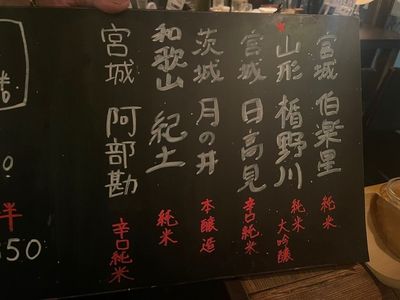 宮城 伯楽星 純米
山形 楯野川 純米大吟醸
宮城 日高見 辛口純米
茨城 月の井 本醸造
和歌山 紀土 純米
宮城 阿部勘 辛口純米
半
350